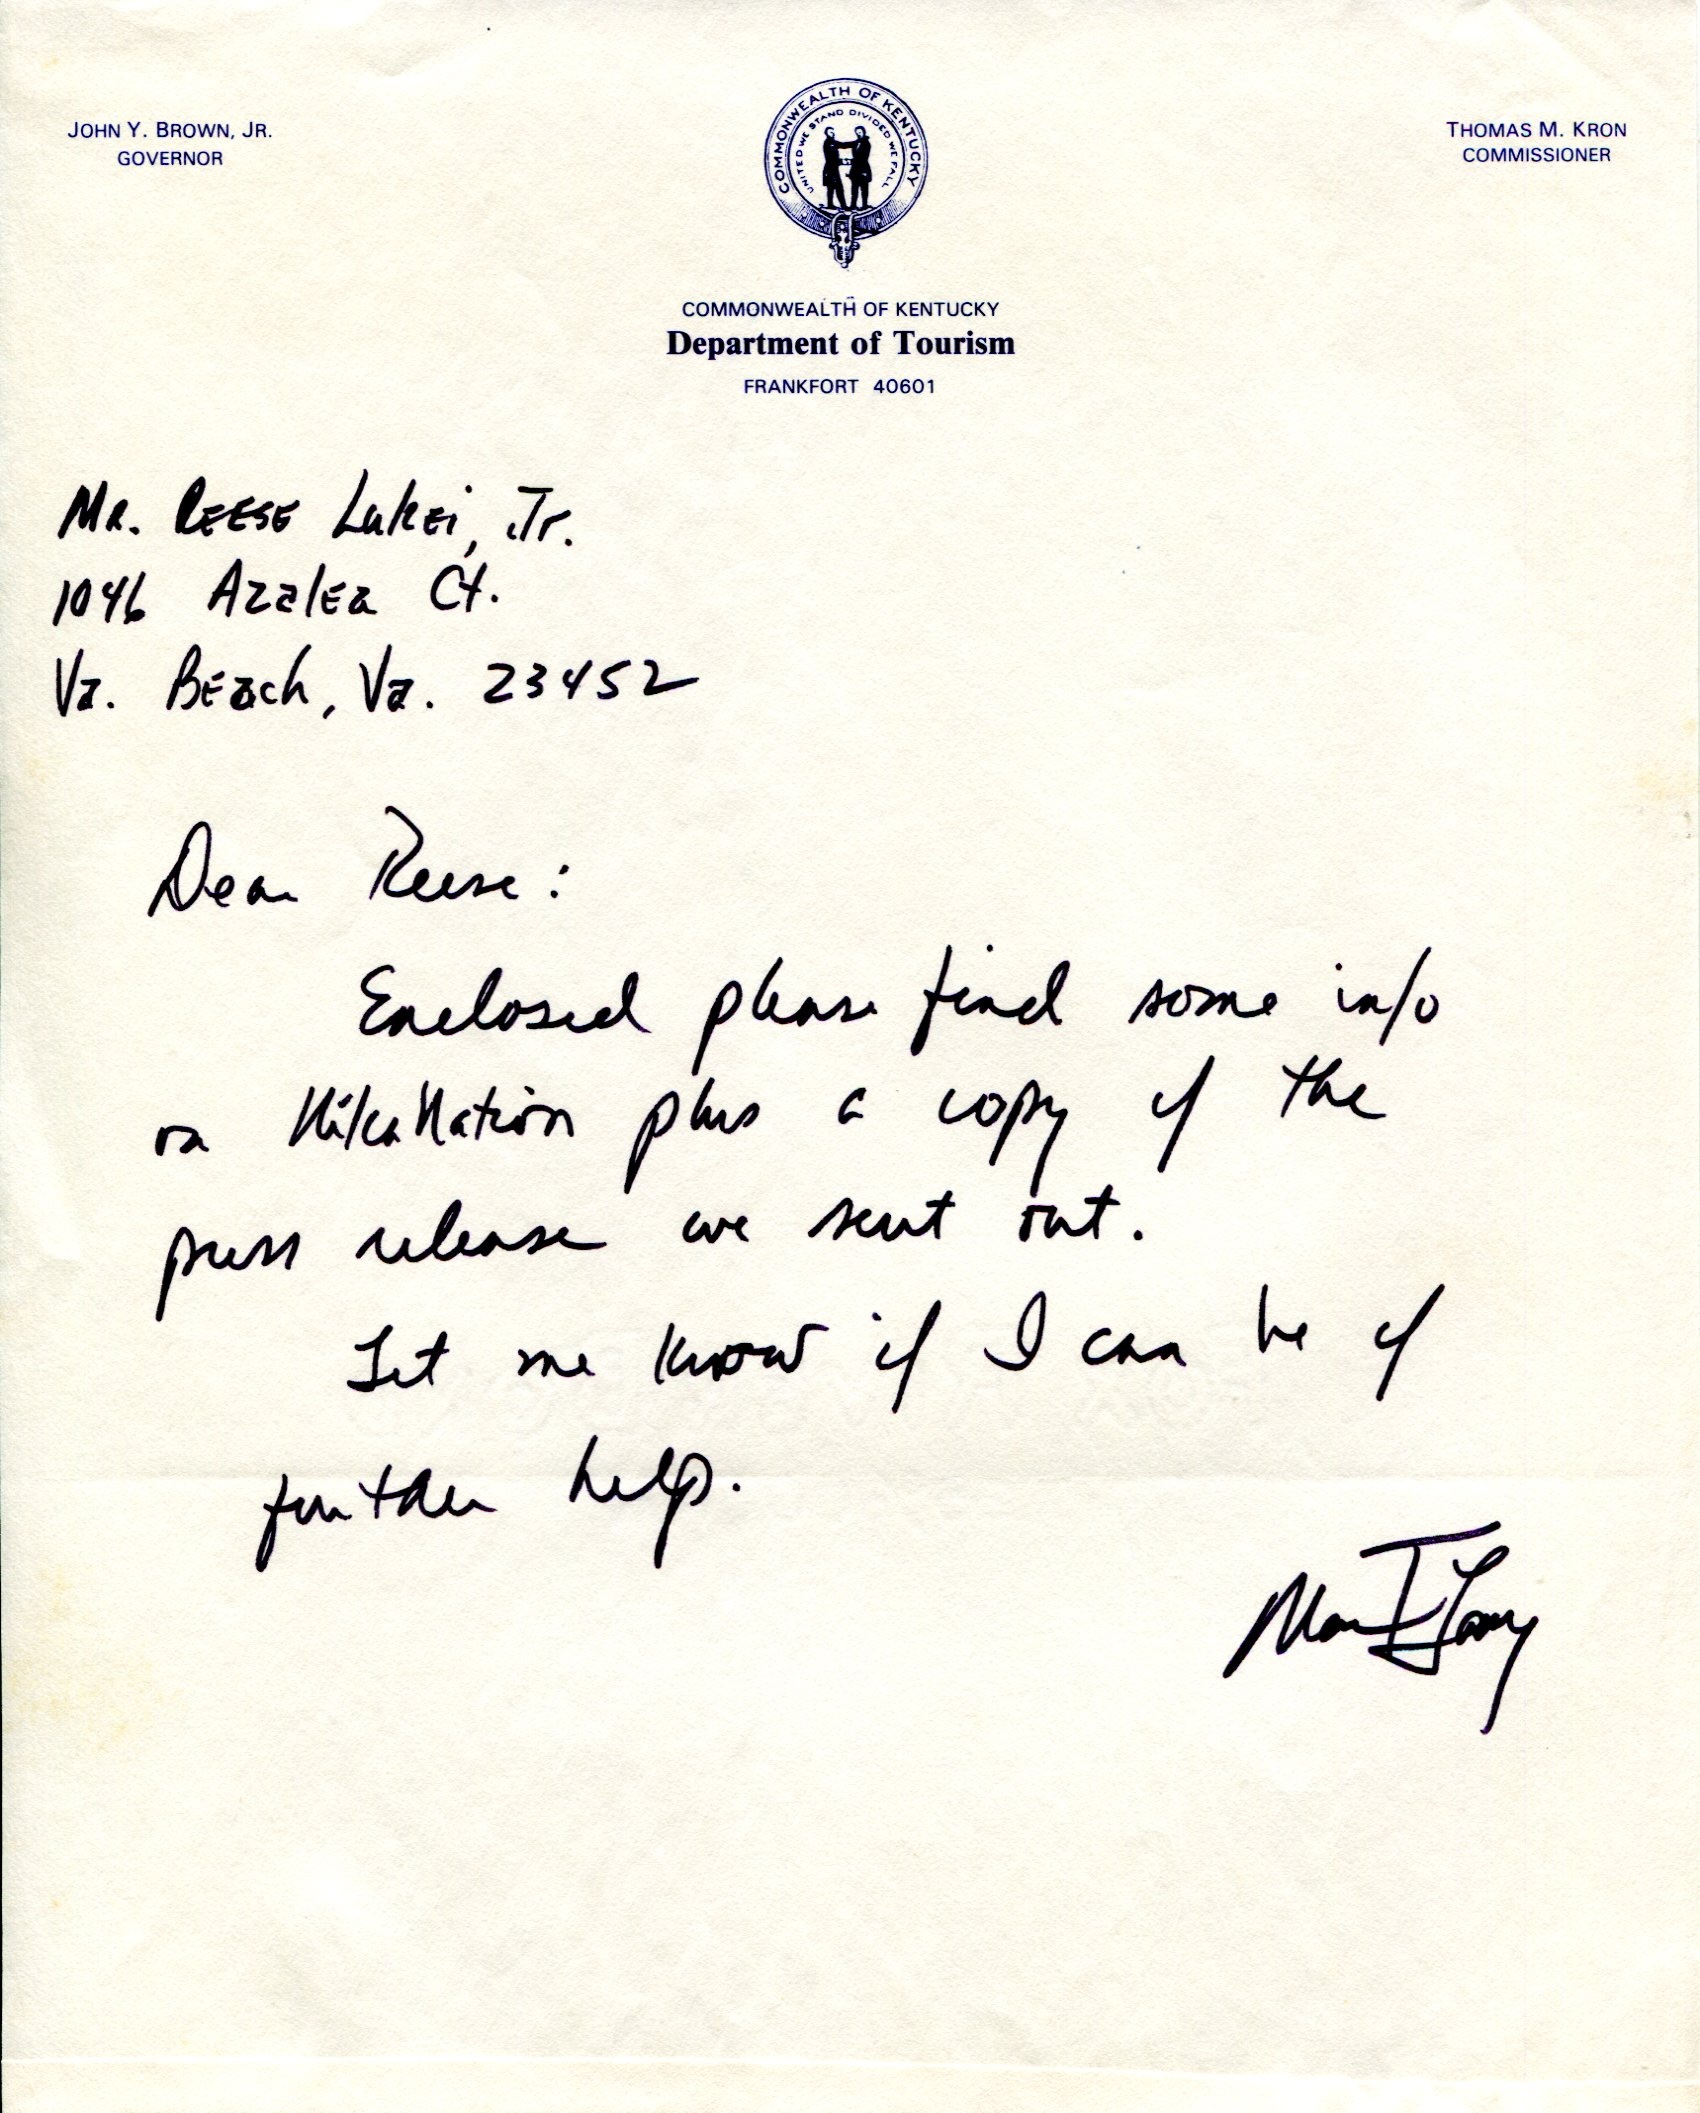 JOHN Y. BROWN, JR.
GOVERNOR
COMMONWEALTH OF KENTUCKY
UNITED WE STAND DIVIDED WE FALL
THOMAS M. KRON
COMMISSIONER
COMMONWEALTH OF KENTUCKY
Department of Tourism
FRANKFORT 40601
Mr. Reese Lukei, Jr.
1046 Azalea Ct.
Va. Beach, Va. 23452
Dear Reese:
Enclosed please find some info
on HikaNation plus a copy of the
press release we sent out.
Let me know if I can be of
further help.